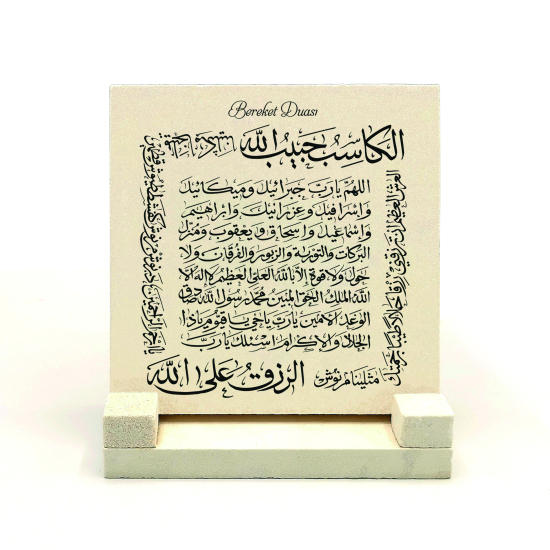 Bereket Duası
الكاسب حبيب الله
اللهم يا رب جبرائيل وميكائيل
واسرافيل وعزرائيل وابراهيم
واسماعيل واسحاق ويعقوب ومنزل
البركات والتورية والزبور والفرقان ولا
حول ولا قوة الا بالله العلي العظيم لا اله الا
الله الملك الحق المبين محمد رسول الله صادق
الوعد الامين يا رب يا رب يا حي يا قيوم يا ذا
الجلال والاكرام اسئلك يا رب
العرش العظيم ان ترزقني رزقا حلالا طيبا برحمتك
يا ارحم الراحمين
الرزق على الله